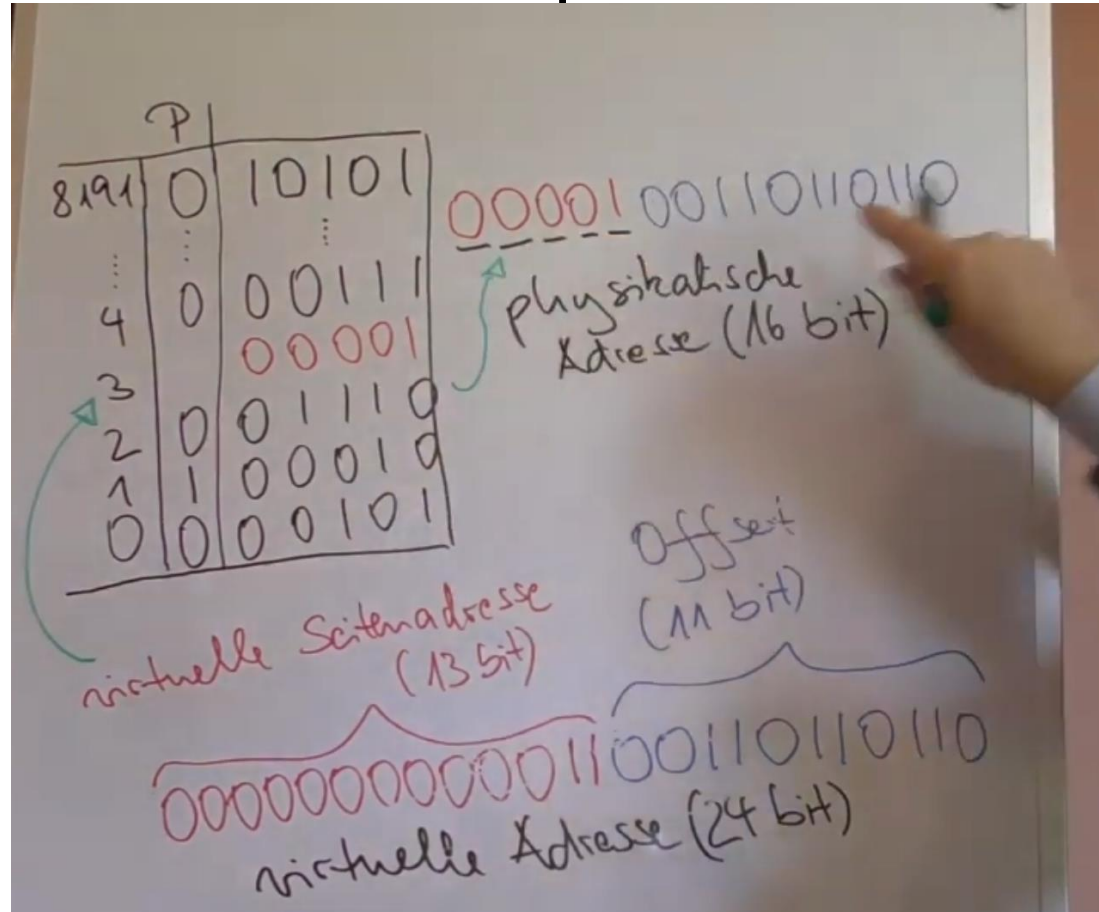 P
8191 0 10101
⋮ ⋮ ⋮
4 0 00111
3 00001
2 0 01110
1 1 00010
0 0 00101
00001 00110110110
physikalische
Adresse (16 bit)
Offset
(11 bit)
virtuelle Seitenadresse
(13 bit)
0000000000011 00110110110
virtuelle Adresse (24 bit)